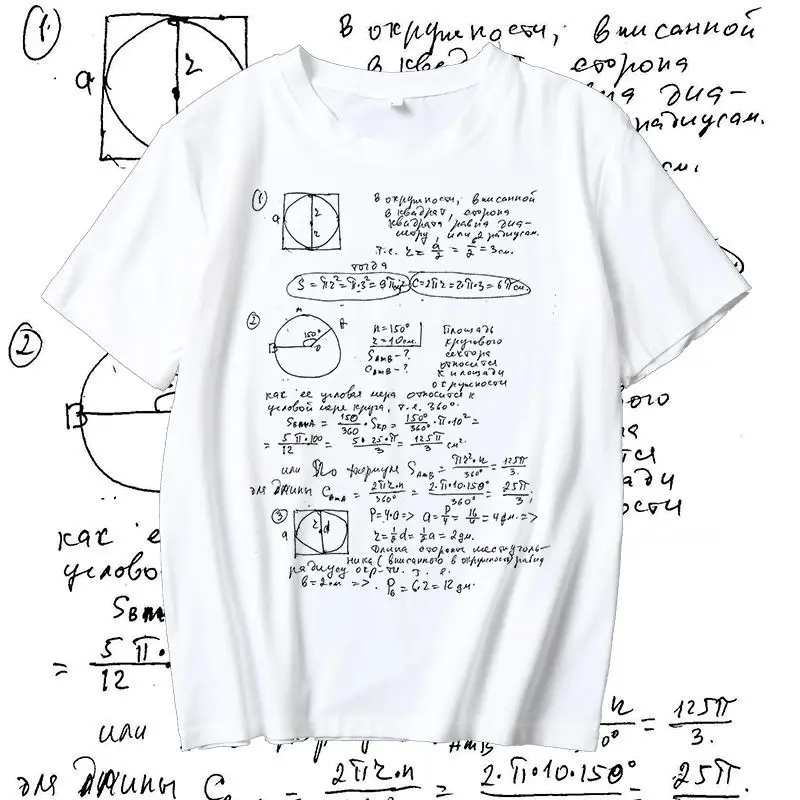 1
В окружности, вписанной
в квадрат, сторона
квадрата равна диа-
метру, или 2 радиусам.
a
r
r
т.е. r = a/2 = 6/2 = 3см.
тогда
S = πr² = π·3² = 9π C = 2πr = 2·π·3 = 6π см.
2
150°
B
O
n = 150°
r = 10см.
S AmB - ?
C AmB - ?
Площадь
кругового
сектора
относится
к площади
окружности
как ее угловая мера относится к
угловой мере круга, т.е. 360°.
S BmA = 150/360 · Sкр = 150°/360° · π · 10² =
= 5π·100/12 = 5·25·π/3 = 125π/3 см².
или По формуле S AmB = πr²·n/360° = 125π/3.
для длины C BmA = 2πr·n/360° = 2·π·10·150°/360° = 25π/3;
3
a
r
d
P = 4·a => a = P/4 = 16/4 = 4дм. =>
r = ½d = ½a = 2дм.
Длина стороны шестиуголь-
ника (вписанного в окружность) равна
радиусу окр-ти. т. е.
в = 2дм =>. P₆ = 6·2 = 12дм.
1
a
r
В окружности, вписанной
сторона
диа-
радиусам.
см.
2
B
ого
сти
как е
углово
S BmA
= 5π·/12
или
n/0° = 125π/3.
AmB
для длины C 2πr·n 2·π·10·150° 25π